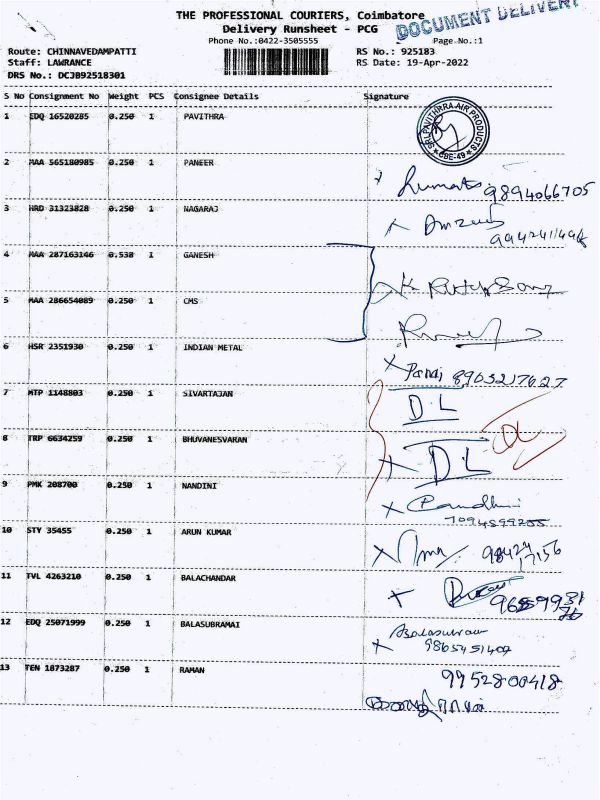 THE PROFESSIONAL COURIERS, Coimbatore
DOCUMENT DELIVERY
Delivery Runsheet - PCG
Phone No.:0422-3505555
Page No.:1
Route: CHINNAVEDAMPATTI
RS No.: 925183
Staff: LAWRANCE
RS Date: 19-Apr-2022
DRS No.: DCJB92518301
S No Consignment No Weight PCS Consignee Details Signature
1 EDQ 16520285 0.250 1 PAVITHRA
SRI PAVITHRRA AIR PRODUCTS
CBE-49
2 MAA 565180985 0.250 1 PANEER
9894066705
3 HRD 31323828 0.250 1 NAGARAJ
4 MAA 287163146 0.538 1 GANESH
5 MAA 286654089 0.250 1 CMS
6 HSR 2351930 0.250 1 INDIAN METAL
8903217627
7 MTP 1148803 0.250 1 SIVARTAJAN
DL
8 TRP 6634259 0.250 1 BHUVANESVARAN
DL
9 PMK 208700 0.250 1 NANDINI
7094599255
10 STY 35455 0.250 1 ARUN KUMAR
98424
17156
11 TVL 4263210 0.250 1 BALACHANDAR
12 EDQ 25071999 0.250 1 BALASUBRAMAI
9865451402
13 TEN 1873287 0.250 1 RAMAN
9952800418